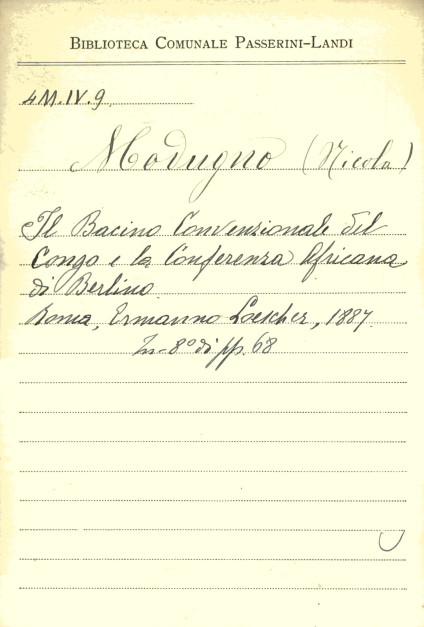 BIBLIOTECA COMUNALE PASSERINI-LANDI
4M.IV.9
Modugno (Nicola)
Il Bacino Convenzionale del
Congo e la Conferenza Africana
di Berlino.
Roma, Ermanno Loescher, 1887.
In-8° di pp. 68